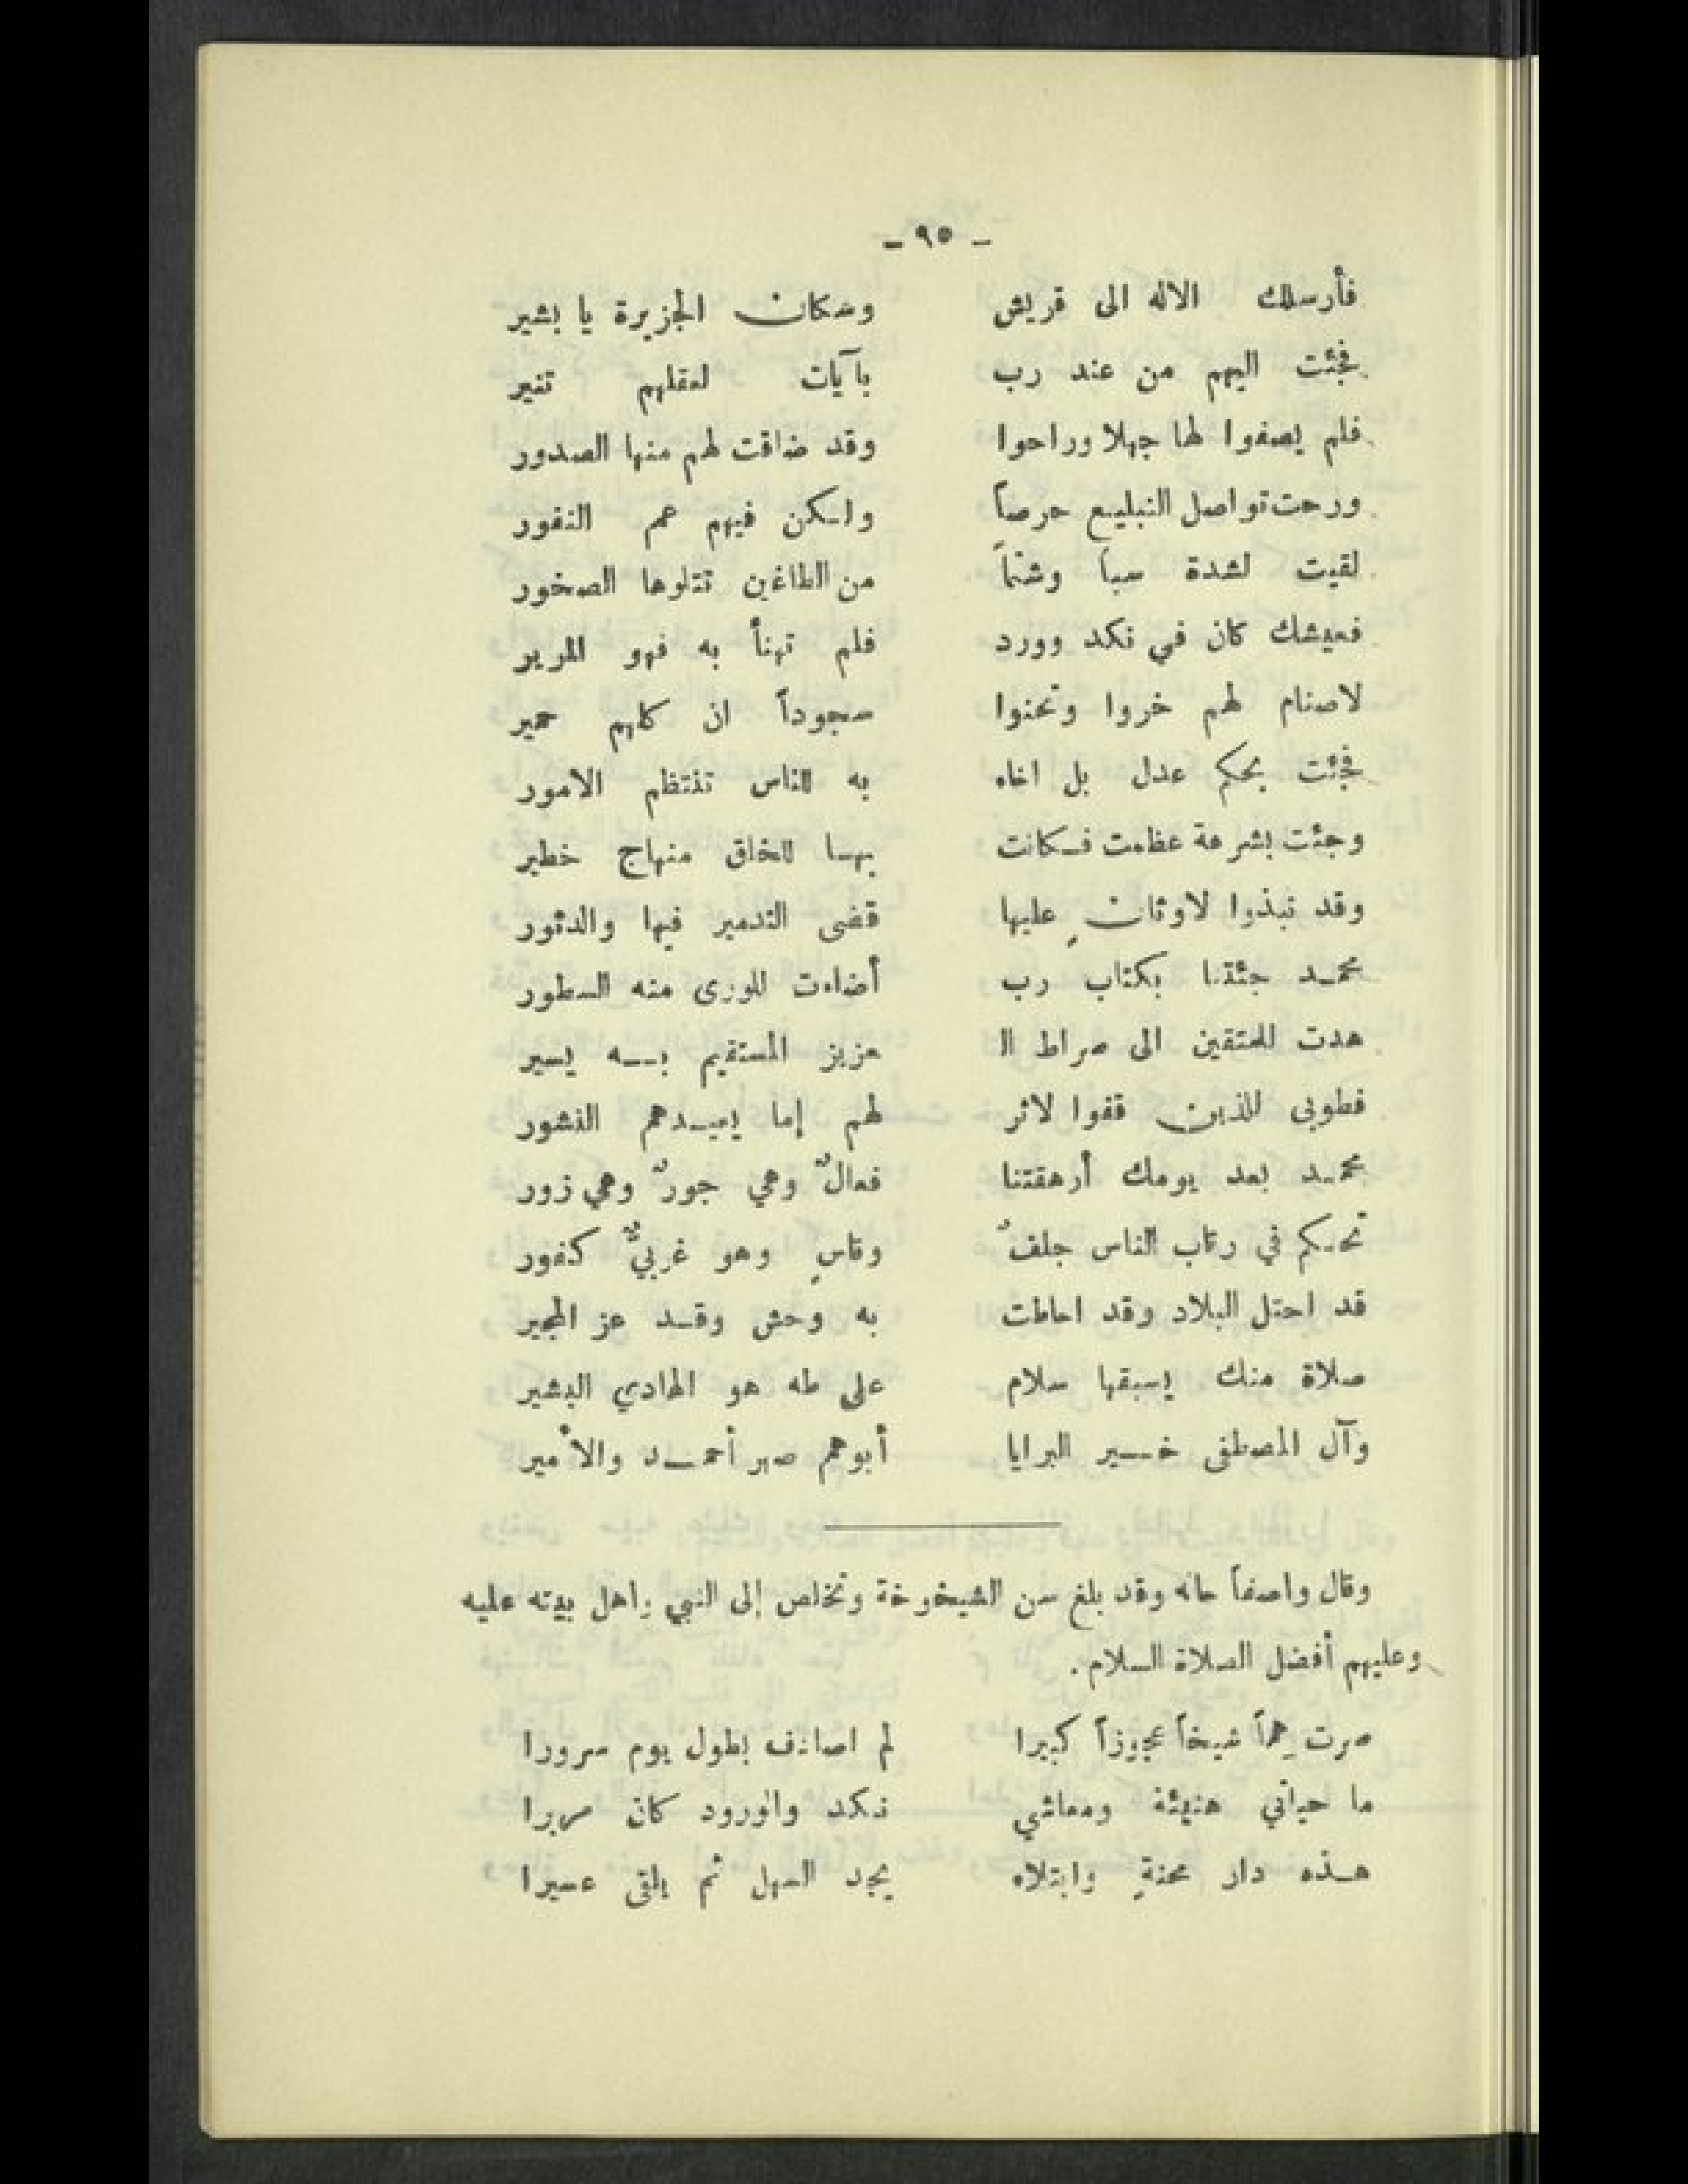 - ٩٥ -
فأرسلك الاله الى قريش وسكان الجزيرة يا بشير
فجئت اليهم من عند رب بآيات لعقلهم تنير
فلم يصغوا لها جهلا وراحوا وقد ضاقت لهم منها الصدور
ورحت تواصل التبليغ حرصاً ولكن فيهم عم النفور
لقيت لشدة سباً وشتماً من الطاغين تتلوها الصخور
فعيشك كان في نكد وورد فلم تهنأ به فهو المرير
لاصنام لهم خروا وتحنوا سجوداً ان كلهم حمير
فجئت بحكم عدل بل اخاه به للناس تنتظم الامور
وجئت بشرعة عظمت فكانت بها للخلق منهاج خطير
وقد نبذوا لاوثان عليها قضى التدمير فيها والدثور
محمد جئتنا بكتاب رب أضاءت للورى منه السطور
هدت للمتقين الى صراط الـ عزيز المستقيم به يسير
فطوبى للذين قفوا لاثر لهم إما يعيدهم النشور
محمد بعد يومك أرهقتنا فعالٌ وهي جورٌ وهي زور
تحكم في رقاب الناس جلفٌ وقاسٍ وهو غربيٌّ كفور
قد احتل البلاد وقد احاطت به وحش وقد عز المجير
صلاة منك يسبقها سلام على طه هو الهادي البشير
وآل المصطفى خير البرايا أبوهم صهر أحمد والأمير
وقال واصفاً حاله وقد بلغ سن الشيخوخة وتخلص إلى النبي واهل بيته عليه
وعليهم أفضل الصلاة السلام.
صرت هِماً شيخاً عجوزاً كبيرا لم اصادف بطول يوم سرورا
ما حياتي هنيئة ومعاشي نكد والورود كان مريرا
هذه دار محنةٍ وابتلاء يجد السهل ثم يلقى عسيرا